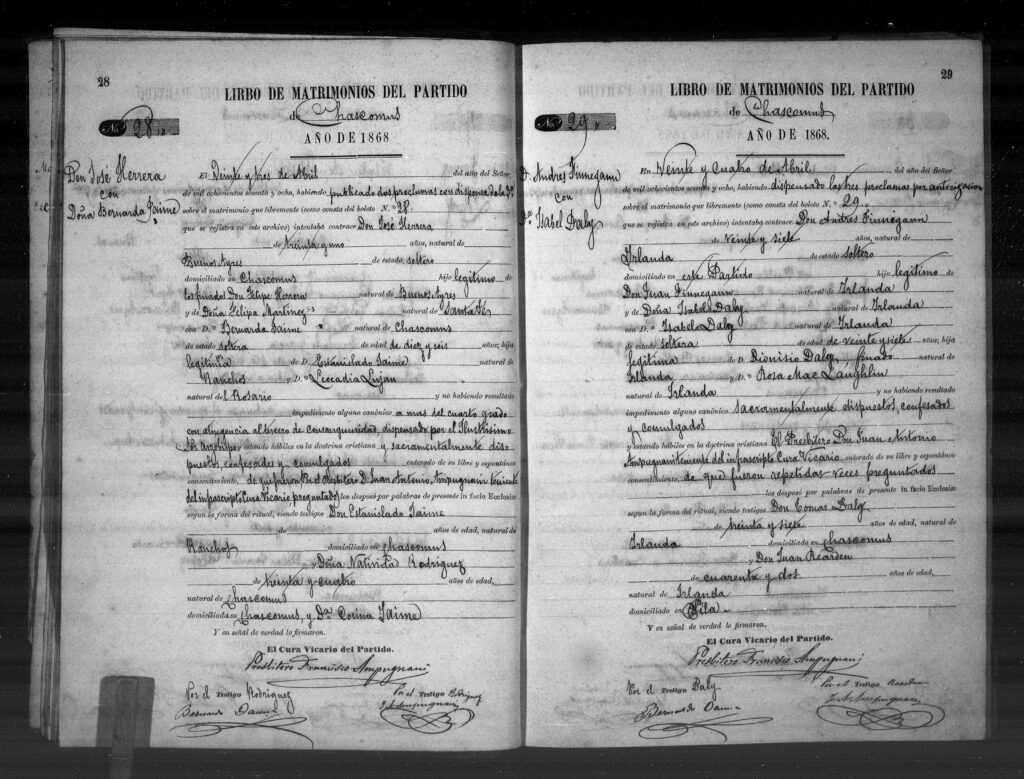 28
LIBRO DE MATRIMONIOS DEL PARTIDO
de Chascomus
AÑO DE 1868
No. 28
Don José Herrera
con
Doña Bernarda Jaime
El Veinte y tres de Abril del año del Señor
de mil ochocientos sesenta y ocho, habiendo publicado dos proclamas con dispensa de la 3ª
sobre el matrimonio que libremente (como consta del boleto N.º 28
que se registra en este archivo) intentaba contraer Don José Herrera
de treinta y uno años, natural de
Buenos Ayres de estado soltero
domiciliado en Chascomus hijo legitimo de
los finados Don Felipe Herrera natural de Buenos Ayres
y de Doña Felipa Martinez natural de Santa Fé
con D.ª Bernarda Jaime natural de Chascomus
de estado soltera de edad de diez y seis años, hija
legitima de D. Estanislado Jaime natural de
Ranchos y D.ª Leocadia Lujan
natural del Rosario y no habiendo resultado
impedimento alguno canónico a mas del cuarto grado
con atingencia al tercero de consanguinidad, dispensado por el Ilustrísimo
Sr. Arzobispo y estando hábiles en la doctrina cristiana y sacramentalmente dis-
puestos, confesados y comulgados enterado de su libre y espontáneo
consentimiento, de que fueron Por el Presbitero D. Juan Antonio Ampugnani teniente
del infrascripto Cura Vicario preguntados los desposó por palabras de presente in facie Ecclesiæ
segun la forma del ritual, siendo testigos Don Estanislado Jaime
de años de edad, natural de
Ranchos domiciliado en Chascomus
y Doña Natividad Rodriguez
de treinta y cuatro años de edad,
natural de Chascomus
domiciliada en Chascomus, y Dª Corina Jaime
Y en señal de verdad lo firmaron.
El Cura Vicario del Partido.
Presbitero Francisco Ampugnani
Por el Testigo Rodriguez
Por el Testigo Rodriguez
Bernardo
J. A. Ampugnani
29
LIBRO DE MATRIMONIOS DEL PARTIDO
de Chascomus
AÑO DE 1868.
No. 29
D. Andres Finnegann
con
Dª Isabel Daly
En Veinte y Cuatro de Abril del año del Señor
de mil ochocientos sesenta y ocho, habiendo dispensado las tres proclamas por autorizacion
sobre el matrimonio que libremente (como consta del boleto N.º 29
que se registra en este archivo) intentaba contraer Don Andres Finnegann
de Veinte y siete años, natural de
Irlanda de estado soltero
domiciliado en este Partido hijo legitimo de
Don Juan Finnegann natural de Irlanda
y de Doña Isabel Daly natural de Irlanda
con D.ª Isabela Daly natural de Irlanda
de estado soltera de edad de veinte y siete años, hija
legitima de D. Dionisio Daly finado natural de
Irlanda y D.ª Rosa Mac Laughlin
natural de Irlanda y no habiendo resultado
impedimento alguno canónico sacramentalmente dispuestos, confesados
y comulgados
y estando hábiles en la doctrina cristiana El Presbitero Don Juan Antonio
Ampugnani teniente del infrascripto Cura Vicario enterado de su libre y espontáneo
consentimiento, de que fueron repetidas veces preguntados
los desposó por palabras de presente in facie Ecclesiæ
segun la forma del ritual, siendo testigos Don Tomas Daly
de treinta y siete años de edad, natural de
Irlanda domiciliado en Chascomus
y Don Juan Rearden
de cuarenta y dos años de edad,
natural de Irlanda
domiciliado en Pila
Y en señal de verdad lo firmaron.
El Cura Vicario del Partido.
Presbitero Francisco Ampugnani
Por el Testigo Daly
Por el Testigo Rearden
Bernardo
J. A. Ampugnani